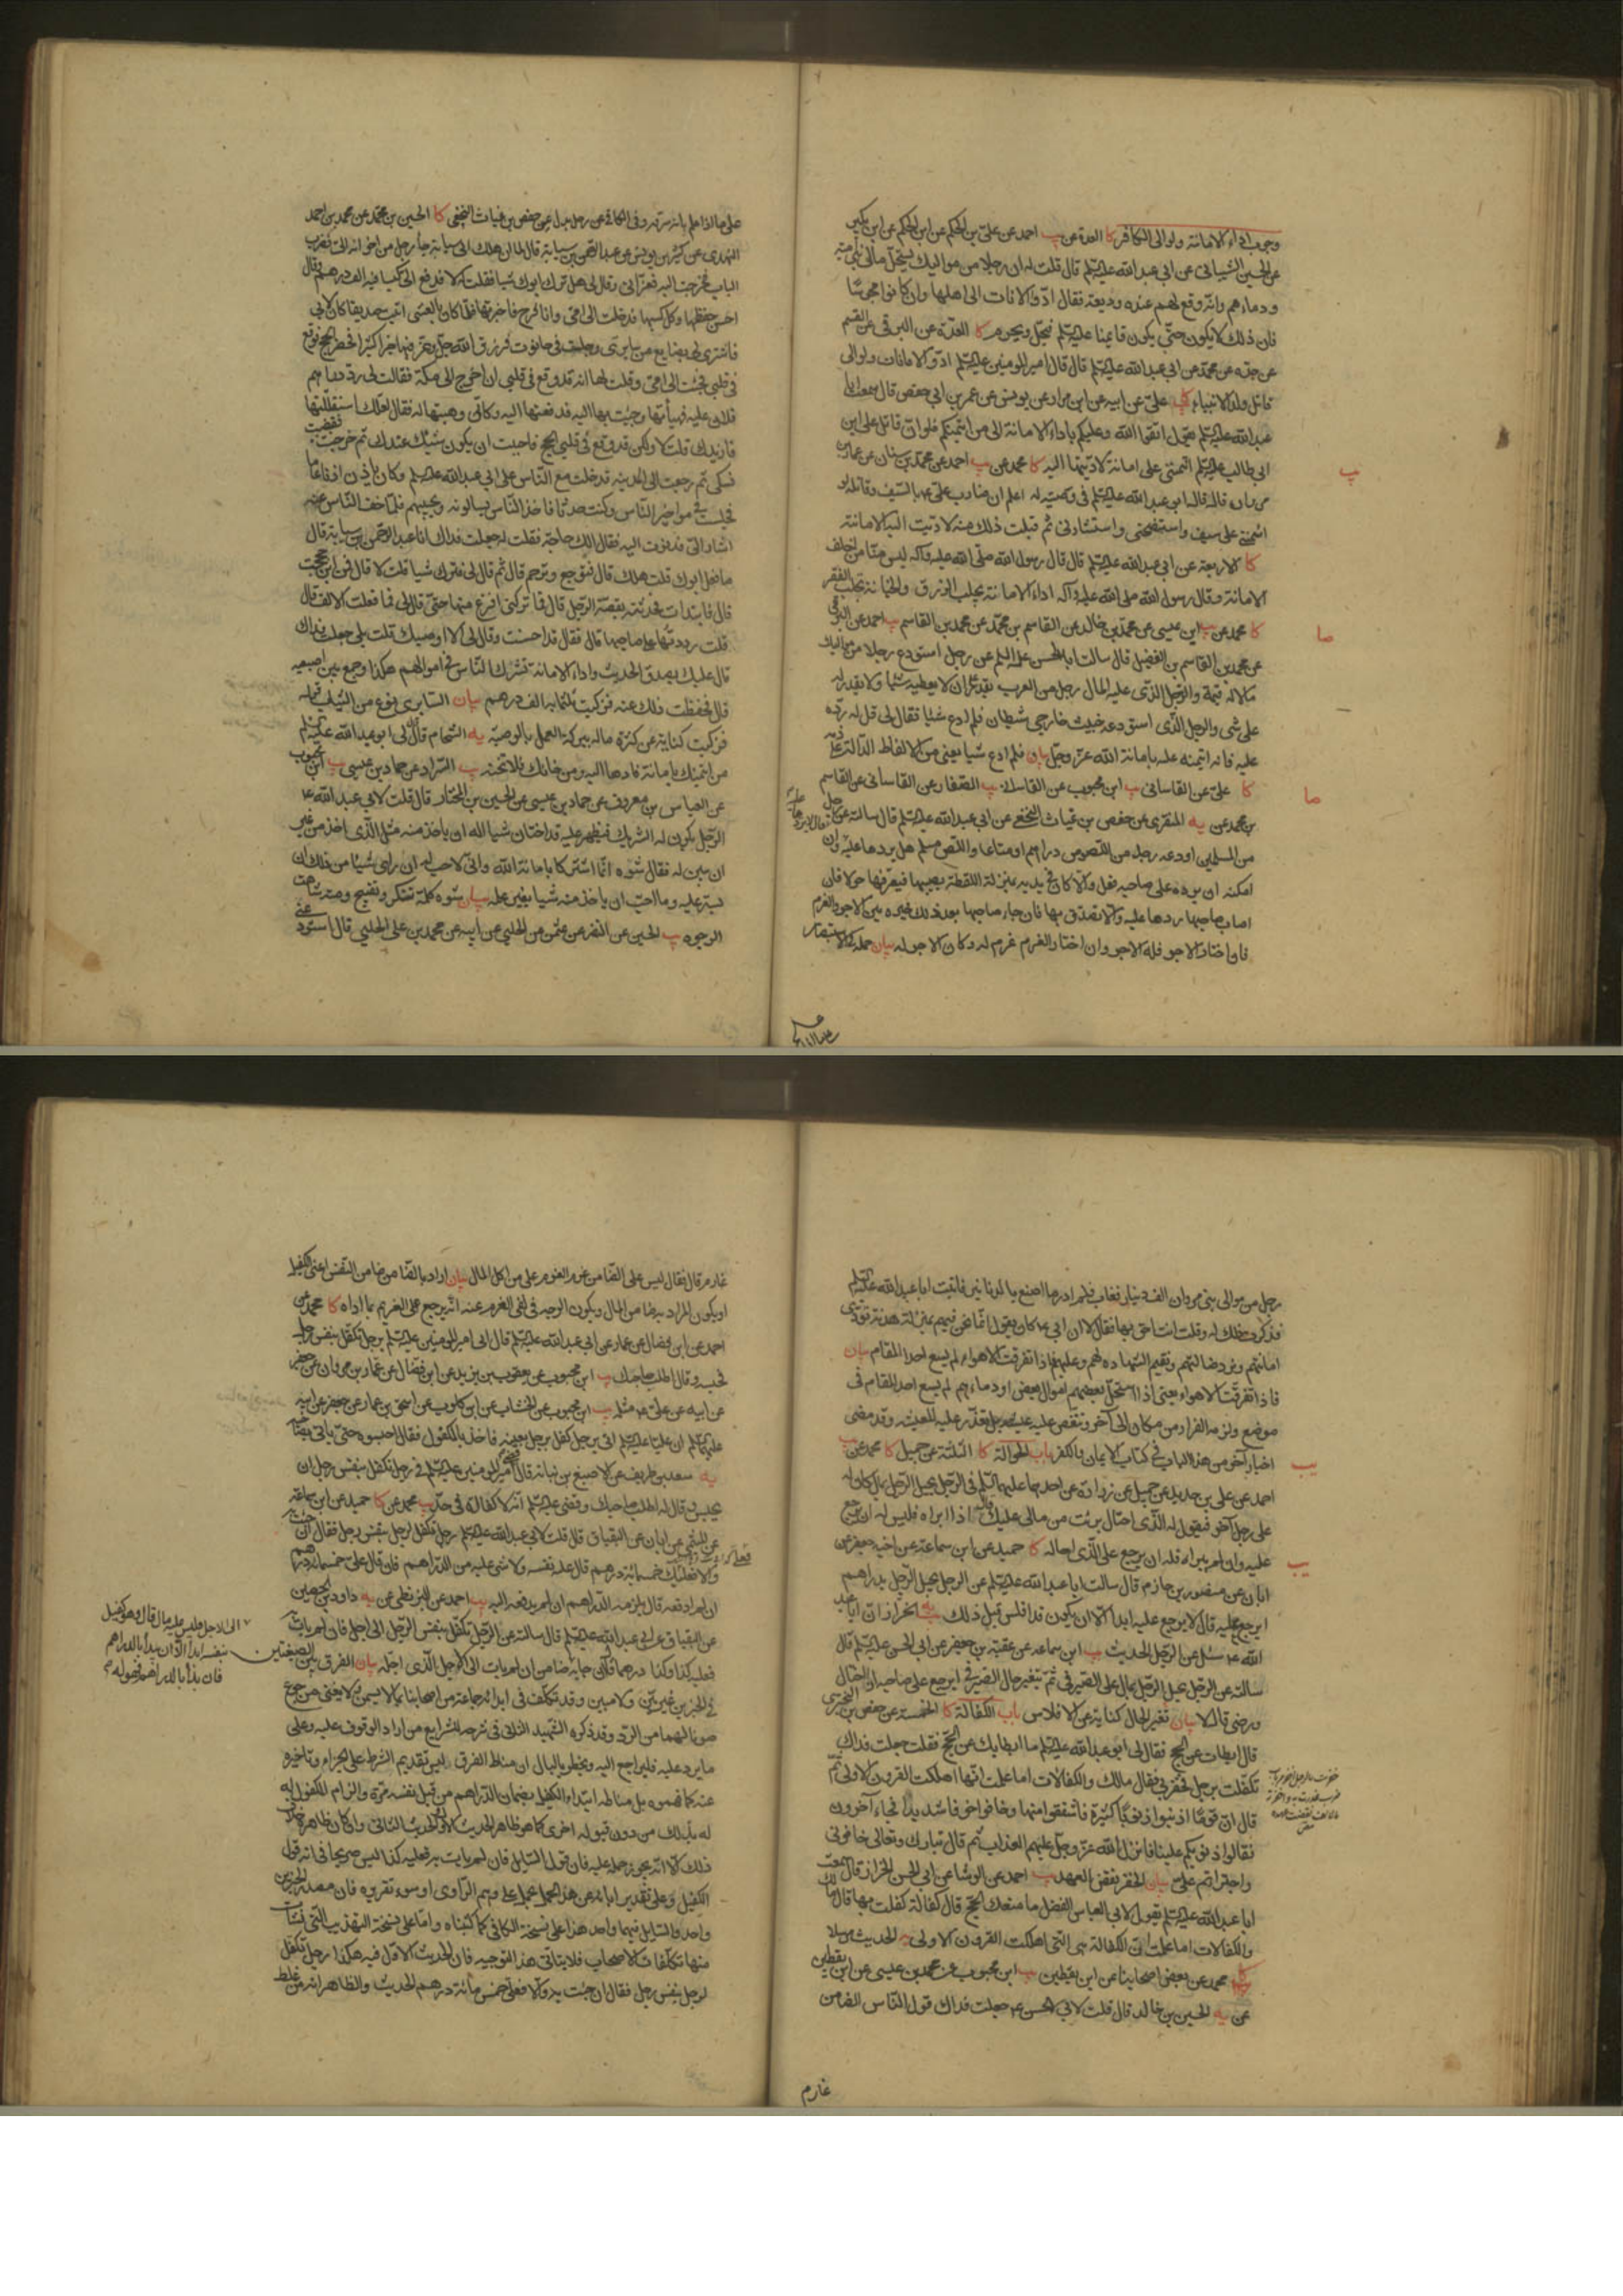 وجوب اداء الامانة ولو الى الكافر كا العدة عن يب احمد عن علي بن الحكم عن ابن بكير
عن الحسين الشيباني عن ابي عبد الله عليه السلم قال قلت له ان رجلا من مواليك يستحل مال بني امية
ودماءهم وانه وقع لهم عنده وديعة فقال ادوا الامانات الى اهلها وان كانوا مجوسا
فان ذلك لا يكون حتى يقوم قائمنا عليه السلم فيحل ويحرم كا العدة عن البرقي عن القسم
عن جده عن محمد عن ابي عبد الله عليه السلم قال قال امير المومنين عليه السلم ادوا الامانات ولو الى
قاتل ولد الانبياء كا علي عن ابيه عن ابن مرار عن يونس عن عمر بن ابي حفص قال سمعت ابا
عبد الله عليه السلم يقول اتقوا الله وعليكم باداء الامانة الى من ائتمنكم فلو ان قاتل علي ابن
ابي طالب عليه السلم ائتمنني على امانة لاديتها اليه كا محمد عن يب احمد عن محمد بن سنان عن عمار بن
مروان قال قال ابو عبد الله عليه السلم في وصيته له اعلم ان ضارب علي ع بالسيف وقاتله لو
ائتمنني على سيف واستنصحني واستشارني ثم قبلت ذلك منه لاديت اليه الامانة
كا الاربعة عن ابي عبد الله عليه السلم قال قال رسول الله صلى الله عليه وآله ليس منا من اخلف
الامانة وقال رسول الله صلى الله عليه وآله اداء الامانة يجلب الرزق والخيانة تجلب الفقر
كا محمد عن يب ابن عيسى عن محمد بن خالد عن القاسم بن محمد عن محمد بن القاسم يب احمد عن البرقي
عن محمد بن القاسم بن الفضيل قال سالت ابا الحسن عليه السلم عن رجل استودع رجلا من مواليك
مالا له قيمة والرجل الذي عليه المال رجل من العرب يقدر على ان لا يعطيه شيئا ولا يقدر له
على شي والرجل الذي استودعه خبيث خارجي شيطان فلم ادع شيئا فقال لي قل له رده
عليه فانه ائتمنه عليه بامانة الله عز وجل بيان فلم ادع شيئا يعني من الالفاظ الدالة على ذمه
كا علي عن القاساني يب ابن محبوب عن القاساني يب الصفار عن القاساني عن القاسم
بن محمد عن يه المنقري عن حفص بن غياث النخعي عن ابي عبد الله عليه السلم قال سالته عن رجل
من المسلمين اودعه رجل من اللصوص دراهم او متاعا واللص مسلم هل يرد ها عليه
امكنه ان يرده على صاحبه فعل والا كان في يديه بمنزلة اللقطة يصيبها فيعرفها حولا فان
اصاب صاحبها ردها عليه والا تصدق بها فان جاء صاحبها بعد ذلك خيره بين الاجر والغرم
فان اختار الاجر فله الاجر وان اختار الغرم غرم له وكان الاجر له بيان حمله في الاستبصار
على ما اذا علم بانه سرقه وفي الكافي عن رجل بدل عن حفص بن غياث النخعي كا الحسين بن محمد عن محمد بن احمد
النهدي عن كثير بن يونس عن عبد الرحمن بن سيابة قال لما ان هلك ابي سيابة جاء رجل من اخوانه الى فضرب
الباب فخرجت اليه فعزاني وقال لي هل ترك ابوك شيئا فقلت لا فدفع الى كيسا فيه الف درهم وقال
احسن حفظها وكل كسبها فدخلت الى امي وانا فرح فاخبرتها فلما كان بالعشي اتيت صديقا كان لابي
فاشترى لي بضايع من سابري وجلست في حانوت فرزق الله جل وعز منها خيرا كثيرا فحضر الحج فوقع
في قلبي فجئت الى امي وقلت لها انه قد وقع في قلبي ان اخرج الى مكة فقالت لي رد دراهم
فلان عليه فهيأتها وجئت بها اليه فدفعتها اليه وكاني وهبتها له فقال لعلك استقللتها
فازيدك قلت لا ولكن قد وقع في قلبي الحج فاحببت ان يكون شيئك عندك ثم خرجت فقضيت
نسكي ثم رجعت الى المدينة فدخلت مع الناس على ابي عبد الله عليه السلم وكان ياذن اذنا عاما
فجلست في مواخير الناس وكنت حدثا فاخذ الناس يسالونه ويجيبهم فلما خف الناس عنه
اشار الي فدنوت اليه فقال الك حاجة فقلت له جعلت فداك انا عبد الرحمن بن سيابة قال
ما فعل ابوك قلت هلك قال فتوجع وترحم قال ثم قال لي فترك شيئا قلت لا قال فمن اين حججت
قال فابتدات فحدثته بقصة الرجل قال فما تركني افرغ منها حتى قال لي فما فعلت الالف قال
قلت رددتها على صاحبها قال فقال قد احسنت وقال لي الا اوصيك قلت بلى جعلت فداك
قال عليك بصدق الحديث واداء الامانة تشرك الناس في اموالهم هكذا وجمع بين اصبعيه
قال فحفظت ذلك عنه فزكيت ثلثماية الف درهم بيان السابري نوع من الثياب قوله
فزكيت كناية عن كثرة ماله ببركة العمل بالوصية يه الشحام قال قال لي ابو عبد الله عليه السلم
من ائتمنك بامانة فادها اليه ومن خانك فلا تخنه يب السراد عن حماد بن عيسى يب ابن محبوب
عن العباس بن معروف عن حماد بن عيسى عن الحسين بن المختار قال قلت لابي عبد الله ع
الرجل يكون له الشريك فيظهر عليه قد اختان شيئا اله ان ياخذ منه مثل الذي اخذ من غير
ان يبين له فقال شوه انما اشتركا بامانة الله واني لاحب له ان راى شيئا من ذلك ان
يستر عليه وما احب ان ياخذ منه شيئا بغير علمه بيان شوه كلمة تنكر وتقبيح ومنه شاهت
الوجوه يب الحسين عن النضر عن عثمن عن الحلبي عن ابيه عن محمد بن علي الحلبي قال استودعني
رجل من موالي بني مروان الف دينار فغاب فلم ادر ما اصنع بالدنانير فاتيت ابا عبد الله عليه السلم
فذكرت ذلك له وقلت انت احق بها فقال لا ان ابي ع كان يقول انما نحن فيهم بمنزلة هدنة نؤدي
امانتهم ونرد ضالتهم ونقيم الشهادة لهم وعليهم فاذا تفرقت الاهواء لم يسع احدا المقام بيان
فاذا تفرقت الاهواء يعني اذا استحل بعضهم اموال بعض او دماءهم لم يسع احد المقام في
موضع ولزمه الفرار من مكان الى آخر وتنقص عليه عيشه بل تعذر عليه المعيشة وقد مضى
اخبار آخر من هذا الباب في كتاب الايمان والكفر باب الحوالة كا الثلثة عن جميل كا محمد عن يب
احمد عن علي بن حديد عن جميل عن زرارة عن احدهما عليهما السلم في الرجل يحيل الرجل بمال كان له
على رجل آخر فيقول له الذي احتال برئت من مالي عليك قال اذا ابراه فليس له ان يرجع
عليه وان لم يبراه فله ان يرجع على الذي احاله كا حميد عن ابن سماعة عن اخيه جعفر عن
ابان عن منصور بن حازم قال سالت ابا عبد الله عليه السلم عن الرجل يحيل الرجل بدراهم
ايرجع عليه قال لا يرجع عليه ابدا الا ان يكون قد افلس قبل ذلك يه الخزاز ان ابا عبد
الله ع سئل عن الرجل الحديث يب ابن سماعة عن عقبة بن جعفر عن ابي الحسن عليه السلم قال
سالته عن الرجل يحيل الرجل بمال على الصيرفي ثم يتغير حال الصيرفي ايرجع على صاحبه اذا احتال
ورضي قال لا بيان تغير الحال كناية عن الافلاس باب الكفالة كا الخمسة عن حفص بن البختري
قال ابطات عن الحج فقال لي ابو عبد الله عليه السلم ما ابطا بك عن الحج فقلت جعلت فداك
تكفلت برجل فخفرني فقال مالك والكفالات اما علمت انها اهلكت القرون الاولى ثم
قال ان قوما اذنبوا ذنوبا كثيرة فاشفقوا منها وخافوا خوفا شديدا فجاء آخرون
فقالوا ذنوبكم علينا فانزل الله عز وجل عليهم العذاب ثم قال تبارك وتعالى خافوني
واجتراتم علي بيان الخفر نقض العهد يب احمد عن الوشا عن ابي الحسن الخزاز قال سمعت
ابا عبد الله عليه السلم يقول لابي العباس الفضل ما منعك الحج قال كفالة كفلت بها قال مالك
والكفالات اما علمت ان الكفالة هي التي اهلكت القرون الاولى يه الحديث مرسلا
كا محمد عن بعض اصحابنا عن ابن يقطين يب ابن محبوب عن محمد بن عيسى عن ابن يقطين
عن يه الحسين بن خالد قال قلت لابي الحسن ع جعلت فداك قول الناس الضامن
غارم
غارم قال فقال ليس على الضامن غرم الغرم على من اكل المال بيان اراد بالضامن ضامن النفس اعني الكفيل
او يكون المراد به ضامن المال ويكون الوجه في نفي الغرم عنه انه يرجع على الغريم بما اداه كا محمد عن
احمد عن ابن فضال عن عمار عن ابي عبد الله عليه السلم قال اتى امير المومنين عليه السلم برجل تكفل بنفس رجل
فحبسه وقال اطلب صاحبك يب ابن محبوب عن يعقوب بن يزيد عن ابن فضال عن عمار بن مروان عن جعفر
عن ابيه عن علي ع مثله يب ابن محبوب عن الخشاب عن ابن كلوب عن اسحق بن عمار عن جعفر عن ابيه
عليهما السلم ان عليا عليه السلم اتي برجل كفل برجل بعينه فاخذ بالمكفول فقال احبسوه حتى ياتي بصاحبه
يه سعد بن طريف عن الاصبغ بن نباتة قال قضى امير المومنين عليه السلم في رجل تكفل بنفس رجل ان
يحبس وقال له اطلب صاحبك وقضى عليه السلم انه لا كفالة في حد يب محمد عن كا حميد عن ابن سماعة
عن الميثمي عن ابان عن البقباق قال قلت لابي عبد الله عليه السلم رجل تكفل لرجل بنفس رجل فقال ان جئت به
والا فعليك خمسمائة درهم قال عليه نفسه ولا شي عليه من الدراهم فان قال علي خمسمائة درهم
ان لم ادفعه قال يلزمه الدراهم ان لم يدفعه اليه يب احمد عن البزنطي عن يه داود بن الحصين
عن البقباق عن ابي عبد الله عليه السلم قال سالته عن الرجل تكفل بنفس الرجل الى اجل فان لم يات به
فعليه كذا وكذا درهما قال ان جاء به الى الاجل الذي اجله بيان الفرق بين الصيغتين
في الخبرين غير بين ولا مبين وقد تكلف في ابدائه جماعة من اصحابنا بما لا يسمن ولا يغني من جوع
صونا لهما من الرد وقد ذكره الشهيد الثاني في شرحه للشرايع من اراد الوقوف عليه وعلى
ما يرد عليه فليراجع اليه ويخطر بالبال ان مناط الفرق ليس تقديم الشرط على الجزاء وتاخيره
عنه كما فهموه بل مناطه ابتداء الكفيل بضمان الدراهم من قبل نفسه مرة والزام المكفول له
له بذلك من دون قبوله اخرى كما هو ظاهر الحديث الاول والحديث الثاني وان كان ظاهره خلاف
ذلك الا انه يجوز حمله عليه فان قول السايل فان لم يات به فعليه كذا ليس صريحا في انه قول
الكفيل وعلى تقدير ابائه عن هذا الحمل يحمل على وهم الراوي او سوء تقريره فان مصدر الخبرين
واحد والسايل فيهما واحد هذا على نسخة الكافي كما كتبناه واما على نسخة التهذيب التي نشأت
منها تكلفات الاصحاب فلا يتاتى هذا التوجيه فان الحديث الاول فيه هكذا رجل تكفل
لرجل بنفس رجل فقال ان جئت به والا فعلي خمس مائة درهم الحديث والظاهر انه من غلط
الى الاجل فليس عليه مال قال وهو كفيل
بنفسه ابدا الا ان يبدأ بالدراهم
فان بدأ بالدراهم فهو له